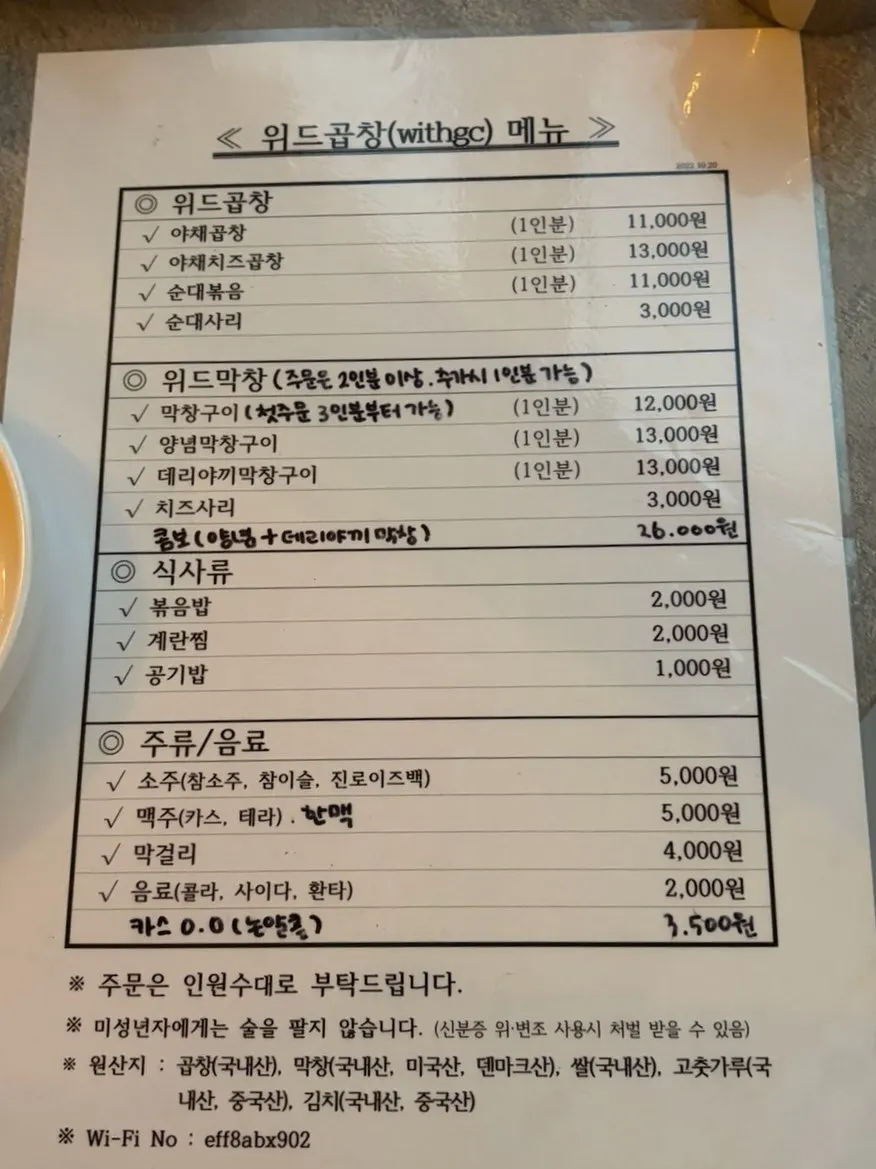 ≪ 위드곱창(withgc) 메뉴 ≫
2022.10.20
◎ 위드곱창
√ 야채곱창 (1인분) 11,000원
√ 야채치즈곱창 (1인분) 13,000원
√ 순대볶음 (1인분) 11,000원
√ 순대사리 3,000원
◎ 위드막창 (주문은 2인분 이상. 추가시 1인분 가능)
√ 막창구이 (첫주문 3인분부터 가능) (1인분) 12,000원
√ 양념막창구이 (1인분) 13,000원
√ 데리야끼막창구이 (1인분) 13,000원
√ 치즈사리 3,000원
콤보 (양념 + 데리야끼 막창) 26.000원
◎ 식사류
√ 볶음밥 2,000원
√ 계란찜 2,000원
√ 공기밥 1,000원
◎ 주류/음료
√ 소주(참소주, 참이슬, 진로이즈백) 5,000원
√ 맥주(카스, 테라) . 한맥 5,000원
√ 막걸리 4,000원
√ 음료(콜라, 사이다, 환타) 2,000원
카스 0.0 (논알콜) 3.500원
※ 주문은 인원수대로 부탁드립니다.
※ 미성년자에게는 술을 팔지 않습니다. (신분증 위·변조 사용시 처벌 받을 수 있음)
※ 원산지 : 곱창(국내산), 막창(국내산, 미국산, 덴마크산), 쌀(국내산), 고춧가루(국
내산, 중국산), 김치(국내산, 중국산)
※ Wi-Fi No : eff8abx902